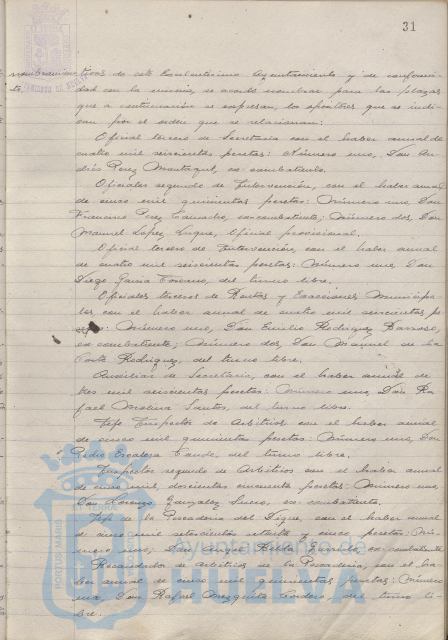 31
nombramientos
tivos de este Excelentísimo Ayuntamiento y de conformi-
dad con la misma, se acordó nombrar para las plazas
que a continuación se expresan, los opositores que se indi-
can por el orden que se relacionan:
Oficial tercero de Secretaría con el haber anual de
cuatro mil seiscientas pesetas: Número uno, Don An-
drés Perez Montagut, ex-combatiente.
Oficiales segundo de Intervención, con el haber anual
de cinco mil quinientas pesetas: Número uno, Don
Francisco Perez Camacho, excombatiente; Número dos, Don
Manuel Lopez Luque, Oficial provisional.
Oficial tercero de Intervención, con el haber anual
de cuatro mil seiscientas pesetas: Número uno, Don
Diego Garcia, del turno libre.
Oficiales terceros de Rentas y Exacciones Municipa-
les con el haber anual de cuatro mil seiscientas pe
setas: Número uno, Don Emilio Rodriguez Barroso,
ex combatiente; Número dos, Don Manuel de la
Corte Rodriguez, del turno libre.
Auxiliar de Secretaría, con el haber anual de
tres mil seiscientas pesetas: Número uno, Don Ra-
fael Molina Santos, del turno libre.
Jefe Inspector de Arbitrios con el haber anual
de cinco mil quinientas pesetas: Número uno, Don
Pedro, del turno libre.
Inspector segundo de Arbitrios con el haber anual
de cinco mil, doscientas cincuenta pesetas: Número uno,
Don Lorenzo Gonzalez, ex-combatiente.
Jefe de la Pescadería del Dique, con el haber anual
de cinco mil setecientas setenta y cinco pesetas: Nú-
mero uno, Don Enrique, ex-combatiente
Recaudador de Arbitrios de la Pescadería, con el ha-
ber anual de cinco mil quinientas pesetas: Número
uno, Don Rafael Mezquita Cordero, del turno li-
bre.
Ayuntamiento de
HUELVA
PORTUS MARIS